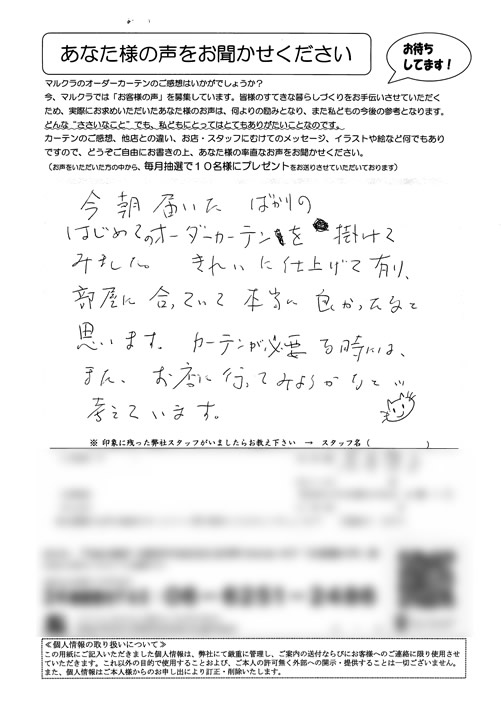 あなた様の声をお聞かせください
お待ち
してます！
マルクラのオーダーカーテンのご感想はいかがでしょうか？
今、マルクラでは「お客様の声」を募集しています。皆様のすてきな暮らしづくりをお手伝いさせていただく
ため、実際にお求めいただいたあなた様のお声は、何よりの励みとなり、また私どもの今後の参考となります。
どんな“ささいなこと”でも、私どもにとってはとてもありがたいことなのです。
カーテンのご感想、他店との違い、お店・スタッフにむけてのメッセージ、イラストや絵など何でもあり
ですので、どうぞご自由にお書きの上、あなた様の率直なお声をお聞かせください。
（お声をいただいた方の中から、毎月抽選で１０名様にプレゼントをお送りさせていただいております）
今朝届いた ばかりの
はじめてのオーダーカーテンを 掛けて
みました。 きれいに仕上げて有り、
部屋に合っていて 本当に 良かったなと
思います。 カーテンが必要な時には、
また、お店に行ってみようかなと
考えています。
※ 印象に残った弊社スタッフがいましたらお教え下さい → スタッフ名（ ）
06-6251-2486
≪個人情報の取り扱いについて≫
この用紙にご記入いただきました個人情報は、弊社にて厳重に管理し、ご案内の送付ならびにお客様へのご連絡に限り使用させ
ていただきます。これ以外の目的で使用することおよび、ご本人の許可無く外部への開示・提供することは一切ございません。
また、個人情報はご本人様からのお申し出により訂正・削除いたします。